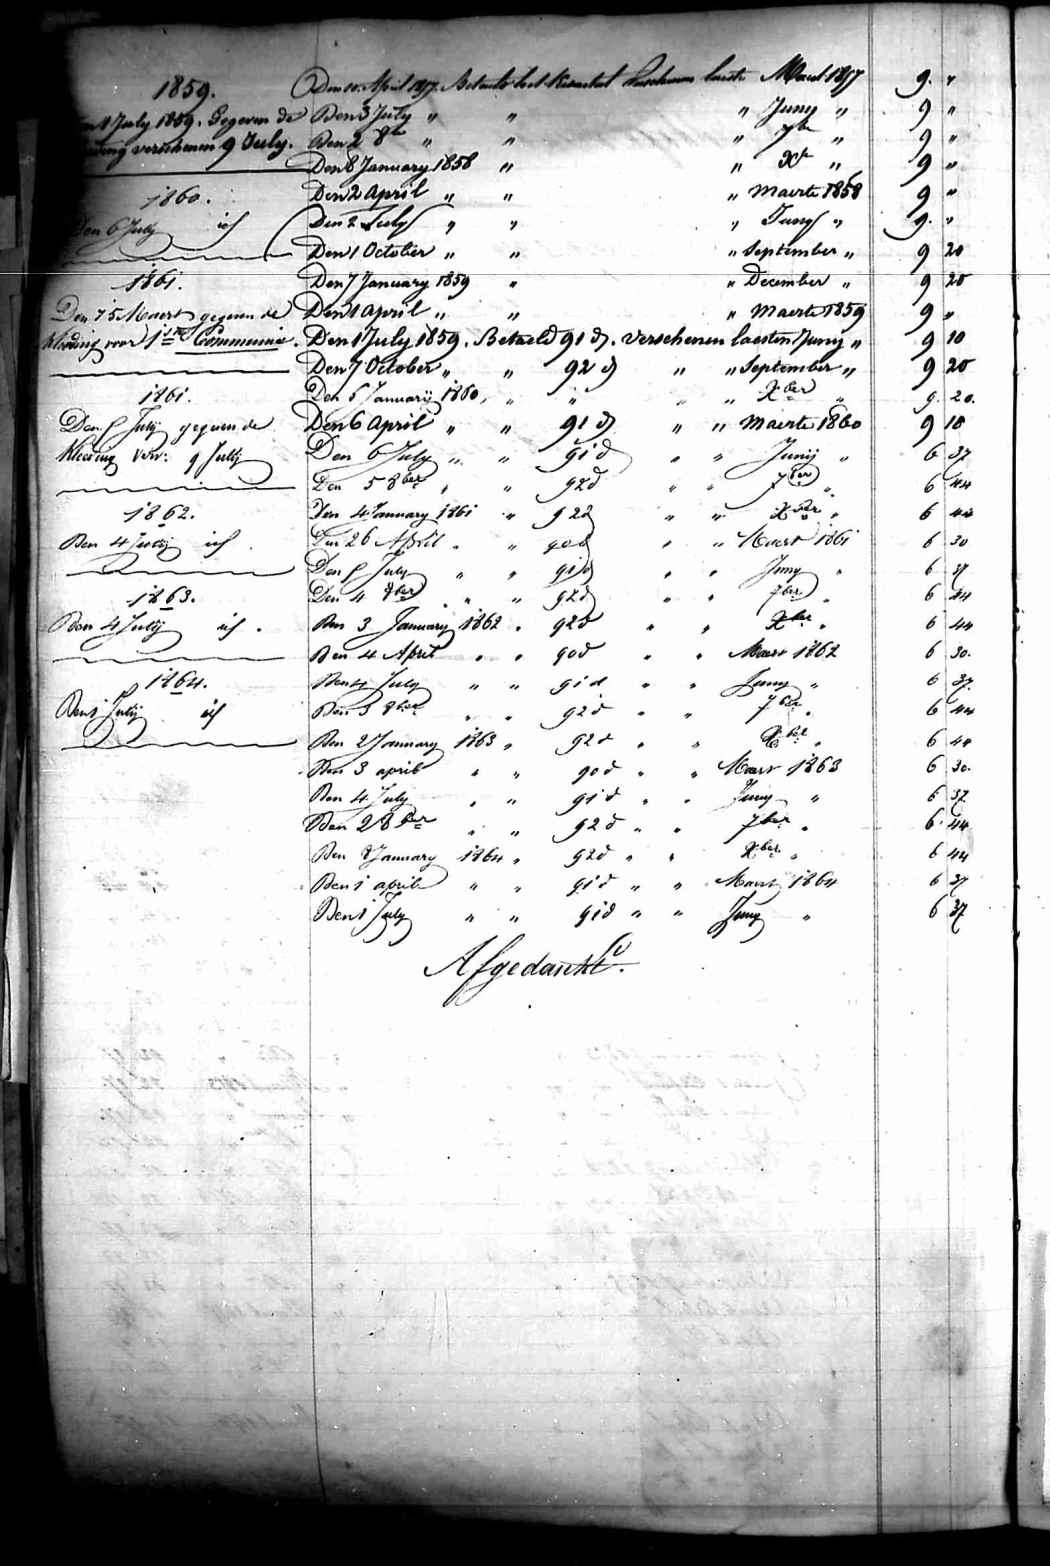 1859.
July 1859. Gegeven de
verschenen 9 July.
1860.
Den 6 July id
1861.
Den 75 Maert gegeven de
kleding voor 1ste Communie.
1861.
Den 5 July gegeven de
Kleeding Vers: 9 July
1862.
Den 4 July id
1863.
Den 4 July id.
1864.
Den 1 July id
Den 10 April 1857. Betaelt het Kwartael Verschenen laeste Maert 1857 9. "
Den 3 July " " " Juny " 9 "
Den 2 8br " " " 7br " 9 "
Den 8 January 1858 " " Xr " 9 "
Den 2 April " " " Maerte 1858 9 "
Den 2 July " " " Juny " 9. "
Den 1 October " " " September " 9 20
Den 7 January 1859 " " December " 9 20
Den 1 April " " " Maerte 1859 9 "
Den 1 July 1859. Betaeld 91 d. verschenen laesten Juny " 9 10
Den 7 October " " 92 d " " September " 9 20
Den 5 January 1860, " " " " Xber " 9. 20.
Den 6 April " " 91 d " " Maerte 1860 9 10
Den 6 July " " 91d " " Juny " 6 37
Den 5 8ber " " 92d " " 7ber " 6 44
Den 4 January 1861 " 92d " " Xber " 6 44
Den 26 April " " 90d " " Maert 1861 6 30
Den 5 July " " 91d " " Juny " 6 37
Den 4 8ber " " 92d " " 7ber " 6 44
Den 3 January 1862 " 92d " " Xber " 6 44
Den 4 April " " 90d " " Maert 1862 6 30.
Den 4 July " " 91d " " Juny " 6 37.
Den 3 8ber " " 92d " " 7ber " 6 44
Den 2 January 1863 " 92d " " Xber " 6 44
Den 3 april " " 90d " " Maert 1863 6 30.
Den 4 July " " 91d " " Juny " 6 37
Den 2 8ber " " 92d " " 7ber " 6 44
Den 8 January 1864 " 92d " " Xber " 6 44
Den 1 april " " 91d " " Maert 1864 6 37
Den 1 July " " 91d " " Juny " 6 37
Afgedankt.